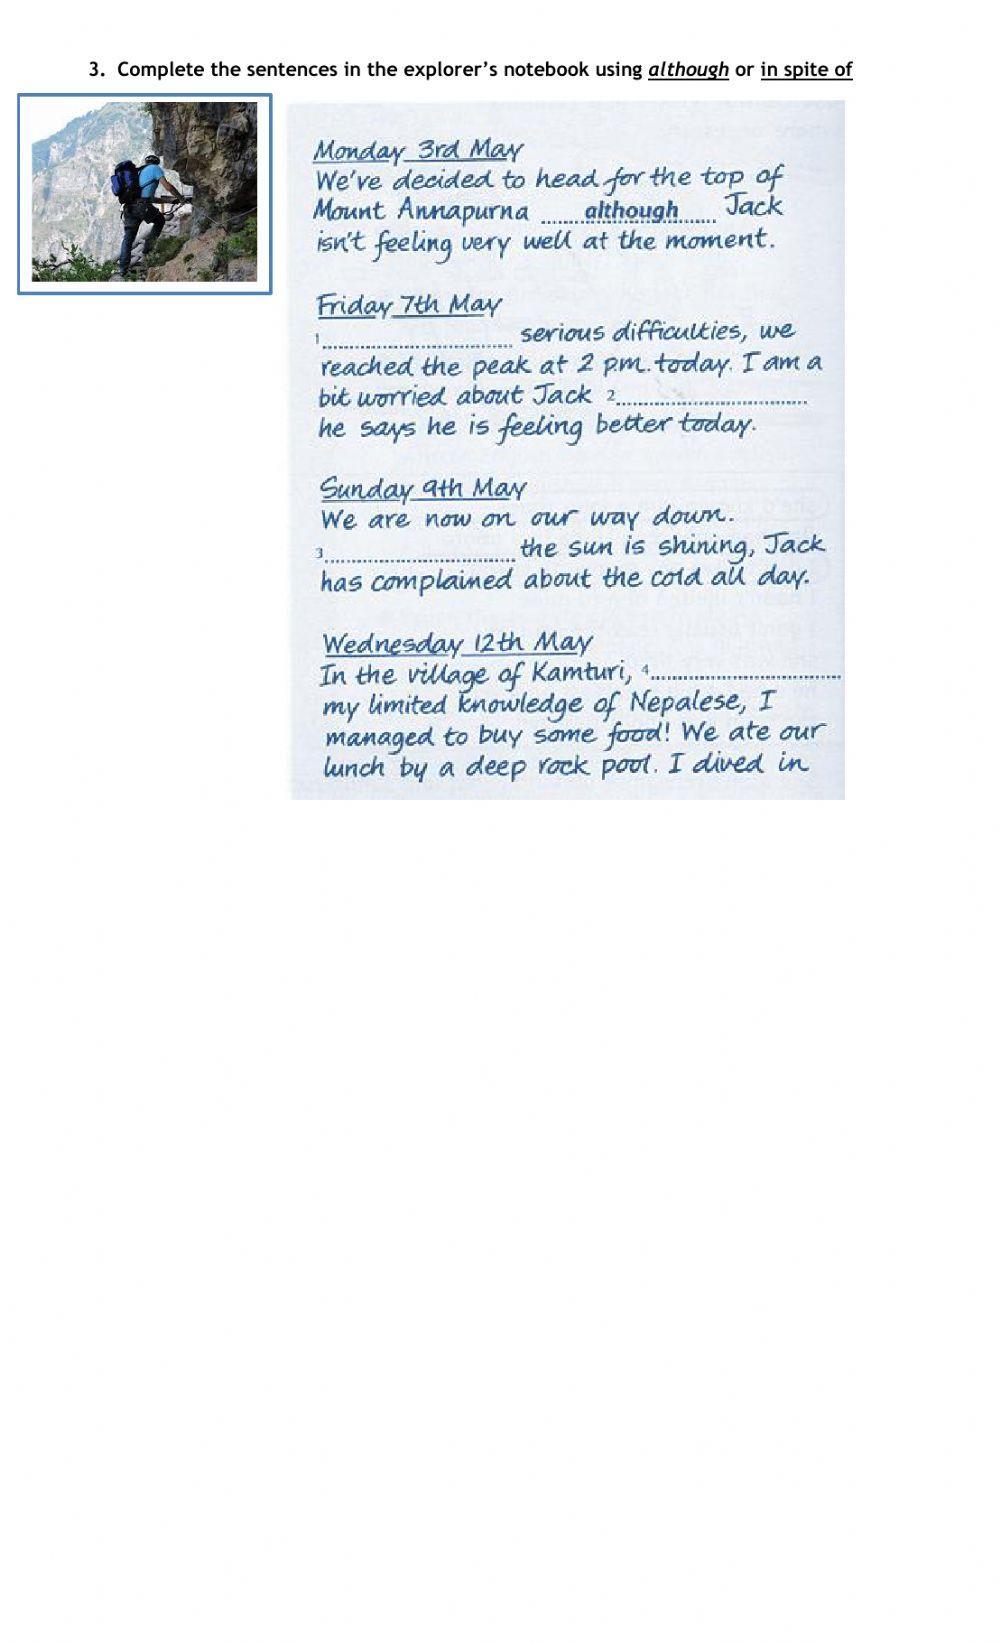 3. Complete the sentences in the explorer's notebook using although or in spite of
Monday 3rd May
We've decided to head for the top of
Mount Annapurna ......although...... Jack
isn't feeling very well at the moment.
Friday 7th May
1.................................. serious difficulties, we
reached the peak at 2 pm. today. I am a
bit worried about Jack 2..................................
he says he is feeling better today.
Sunday 9th May
We are now on our way down.
3.................................. the sun is shining, Jack
has complained about the cold all day.
Wednesday 12th May
In the village of Kamturi, 4..................................
my limited knowledge of Nepalese, I
managed to buy some food! We ate our
lunch by a deep rock pool. I dived in